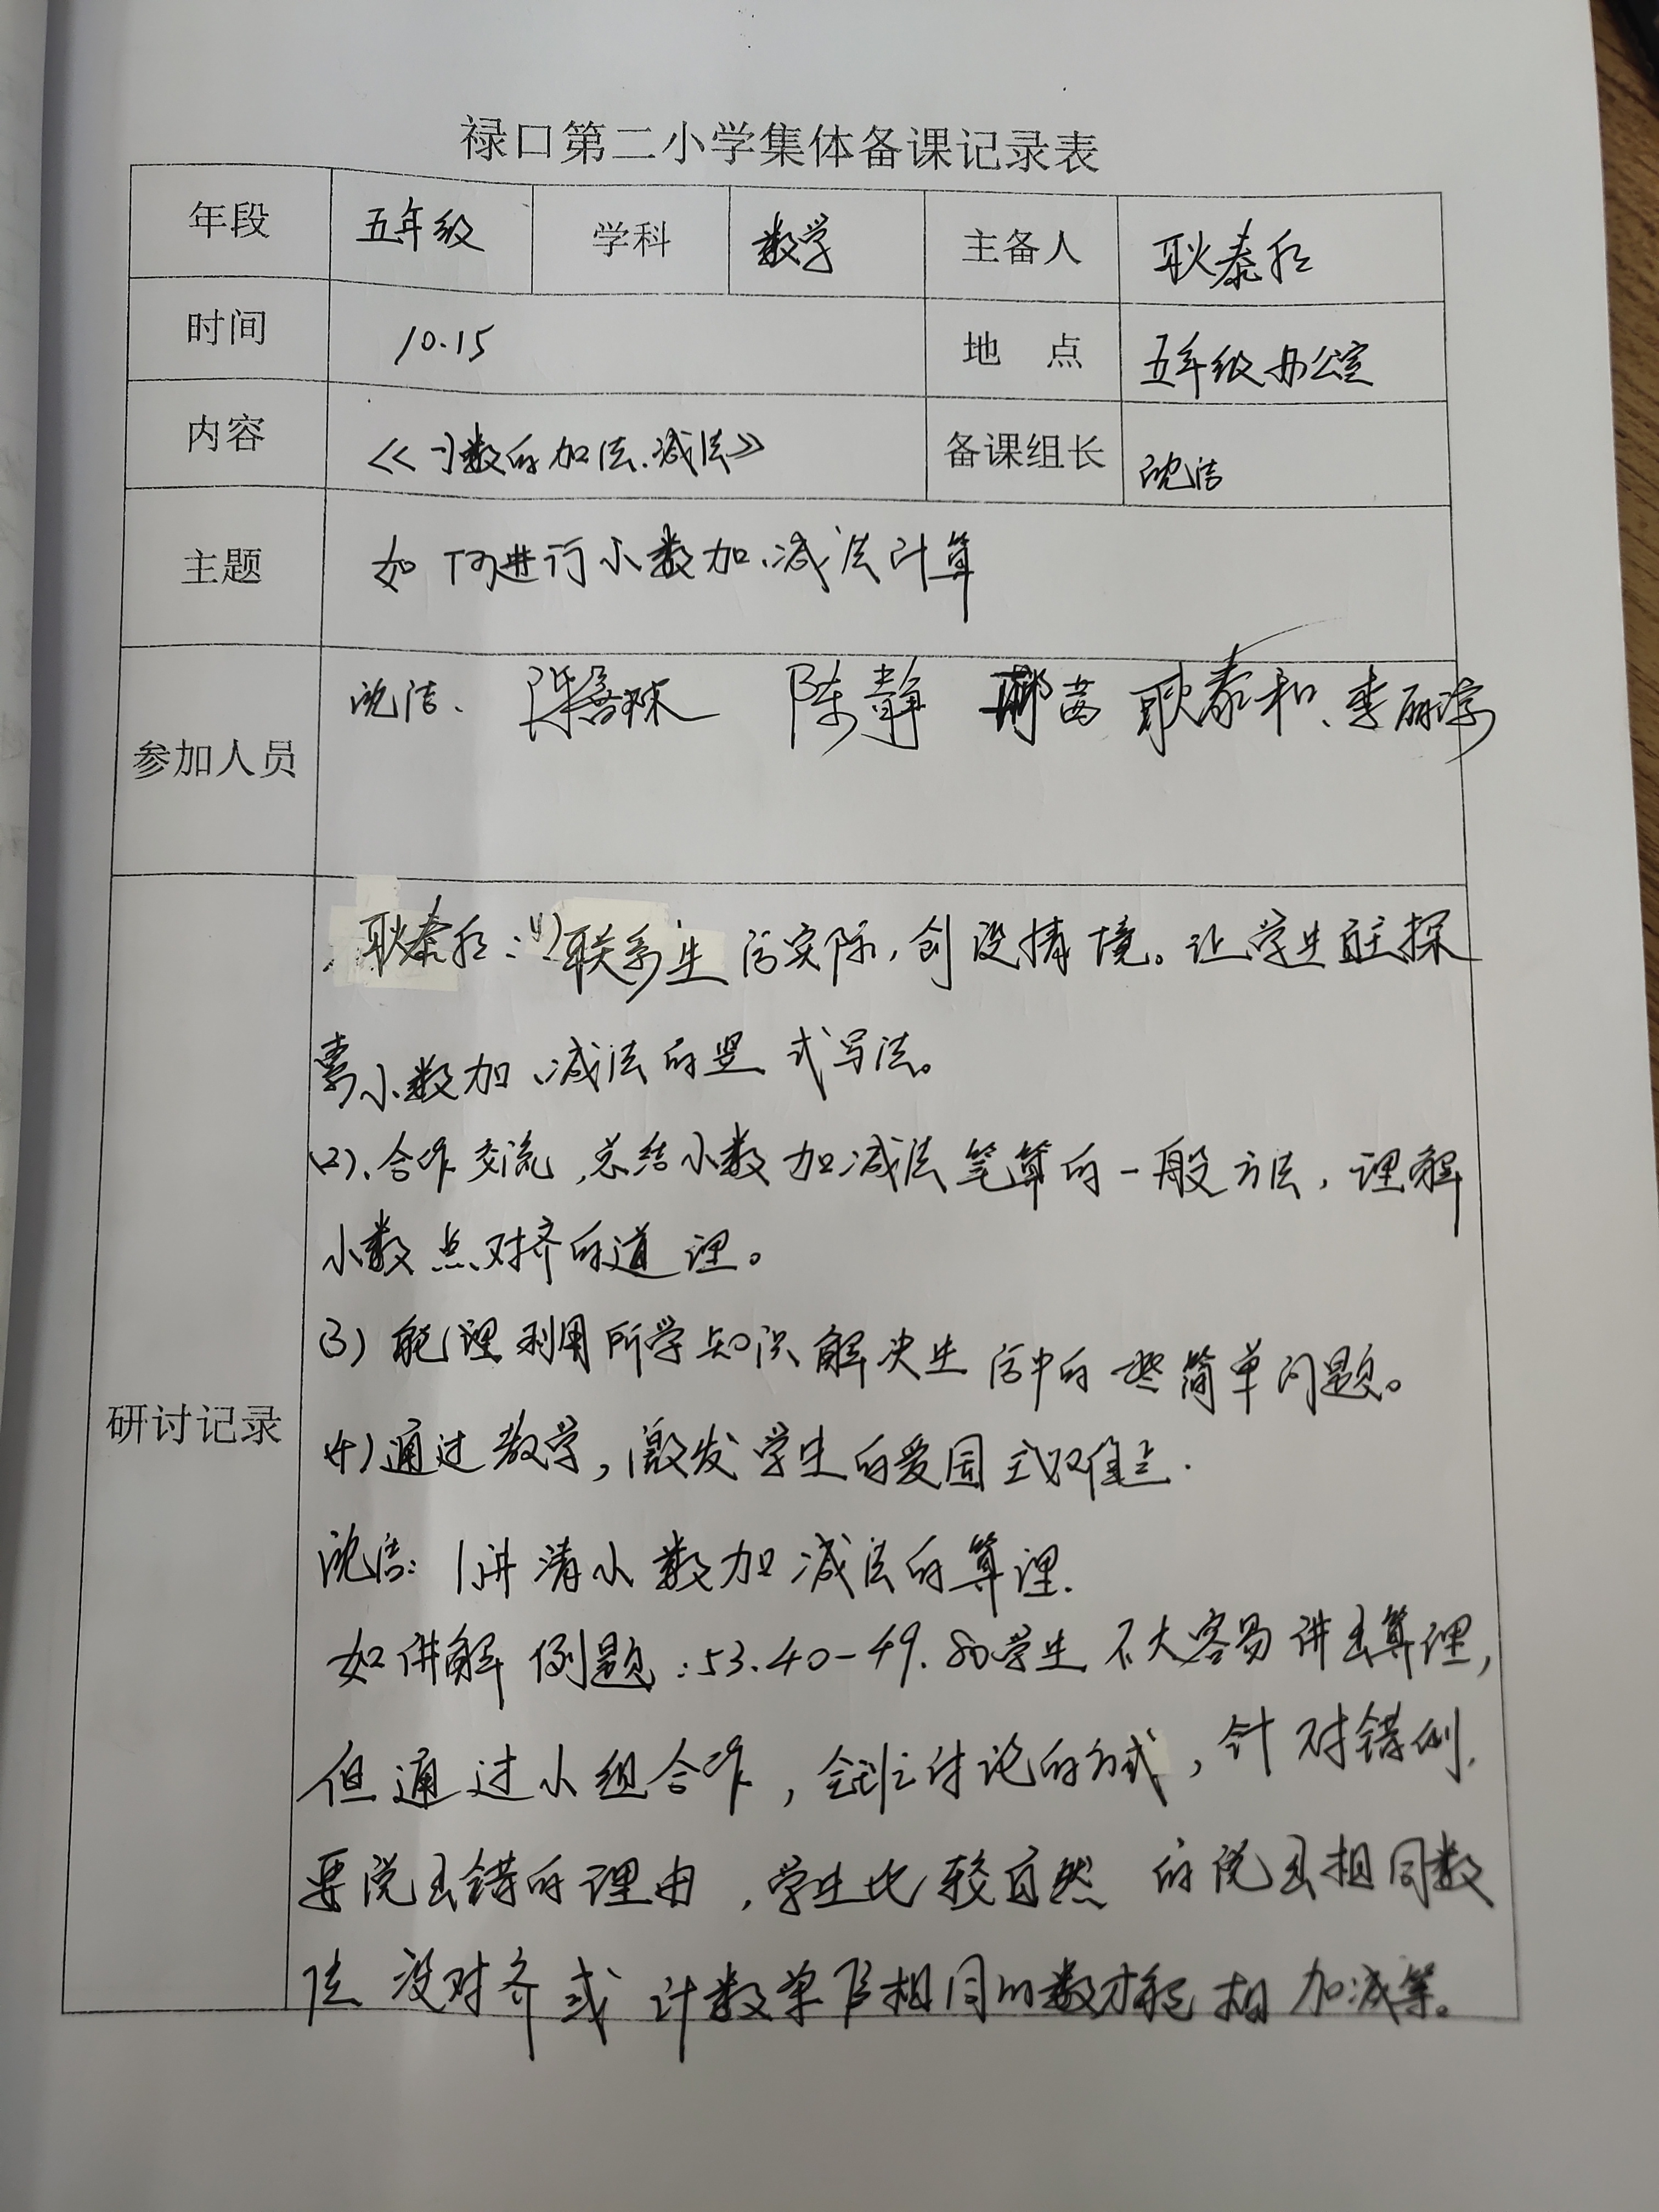 禄口第二小学集体备课记录表
年段 五年级 学科 数学 主备人 耿泰和
时间 10.15 地 点 五年级办公室
内容 《小数的加法.减法》 备课组长 沈洁
主题 如何进行小数加、减法计算
参加人员 沈洁、 陈静 耿泰和、李丽
研讨记录
耿泰和:(1)联系生活实际,创设情境。让学生自主探
索小数加、减法的竖式写法。
(2)、合作交流,总结小数加减法笔算的一般方法,理解
小数点对齐的道理。
(3)能理利用所学知识解决生活中的一些简单问题。
(4)通过教学,激发学生的爱国
沈洁: 1讲清小数加减法的算理.
如讲解例题:53.40-49.80学生不大容易讲出算理,
但通过小组合作,全班讨论的方式,针对错例,
要说出错的理由,学生比较自然的说出相同数
位没对齐或计数单位相同的数才能相加减等。